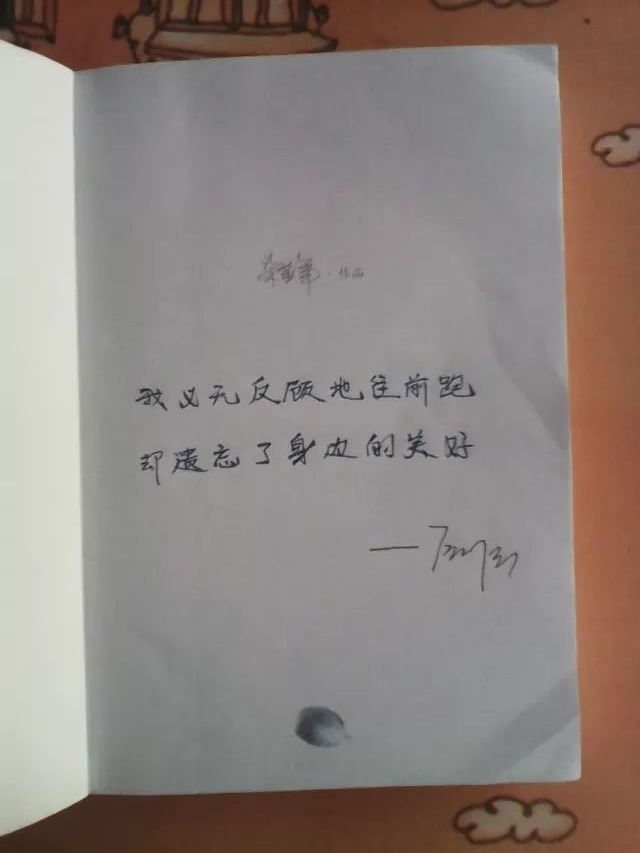 作品
我义无反顾地往前跑
却遗忘了身边的美好